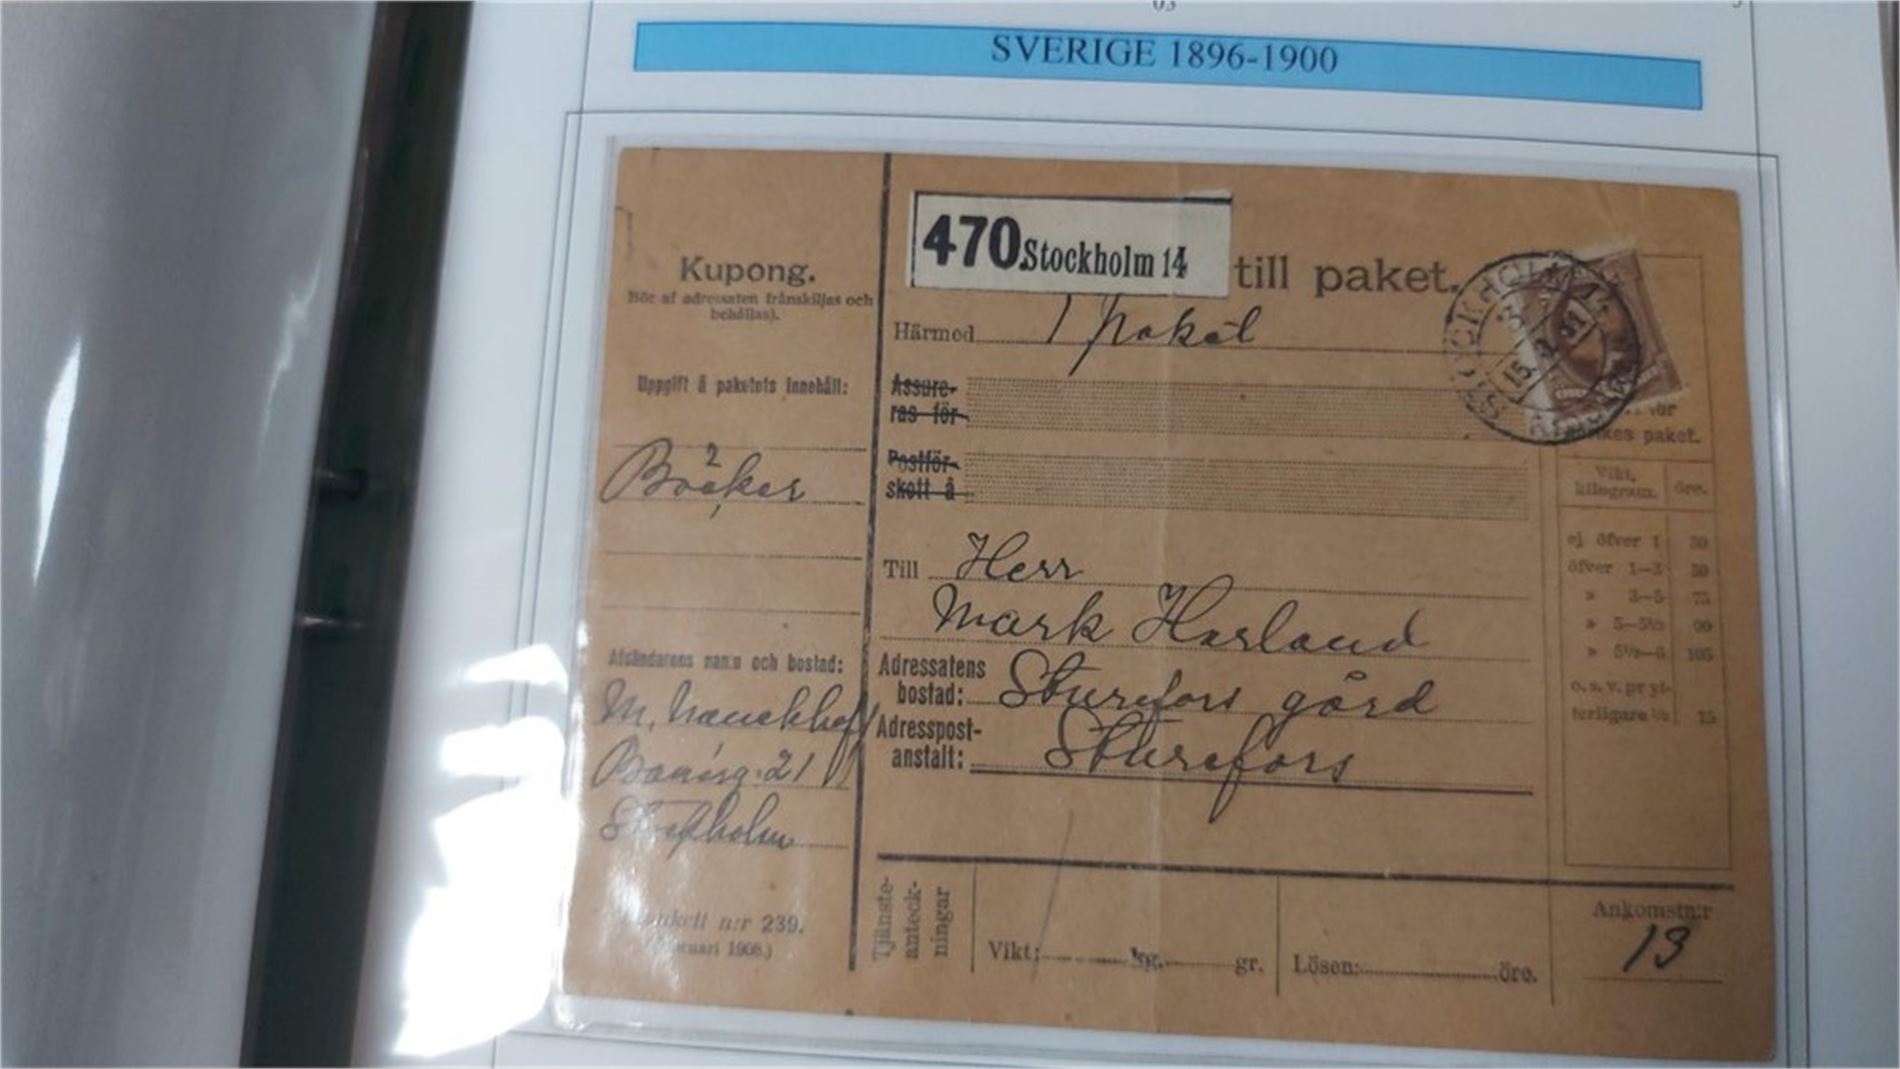 SVERIGE 1896-1900
470 Stockholm 14
till paket.
Kupong.
Bör af adressaten frånskiljas och
behållas).
Härmed 1 paket
Uppgift å paketets innehåll:
Assure-
ras för
Böcker
Postför-
skott å
kes paket.
Vikt, kilogram. öre.
ej öfver 1 30
öfver 1—3 50
» 3—5 75
» 5—5½ 90
» 5½—6 105
o. s. v. pr yt-
terligare ½ 15
Till Herr
Mark Harland
Adressatens
bostad: Sturefors gård
Adresspost-
anstalt: Sturefors
Afsändarens namn och bostad:
M.
21
Stockholm
n:r 239.
1908.)
Tjänste-
anteck-
ningar
Vikt: kg. gr.
Lösen: öre.
Ankomstn:r
13
STOCKHOLM 14